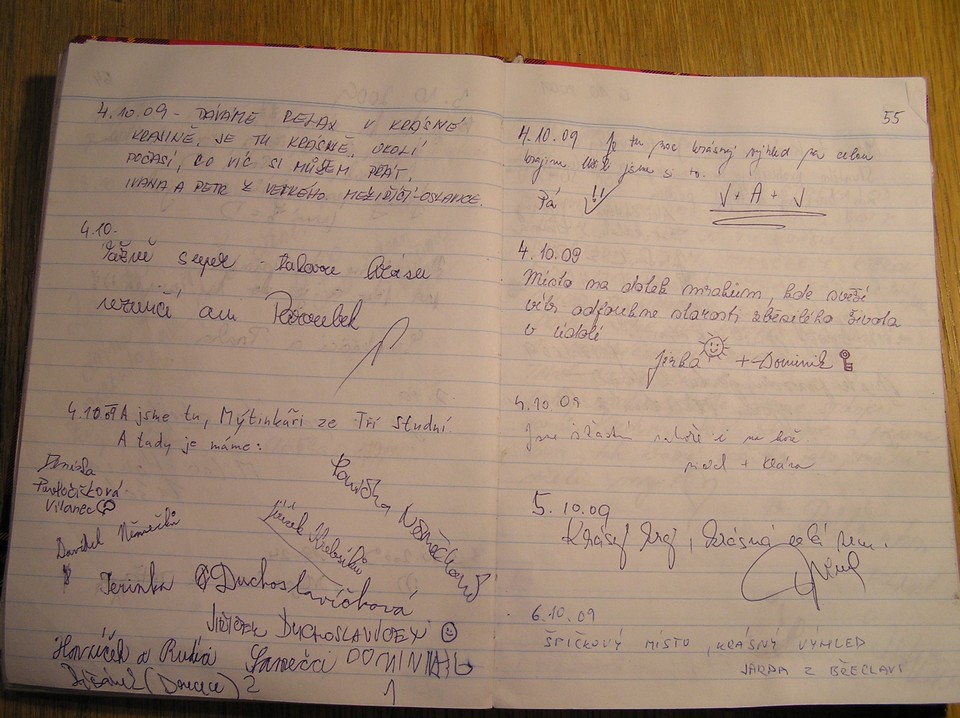 4.10.09 - DÁVÁME RELAX V KRÁSNÉ
KRAJINĚ. JE TU KRÁSNĚ, OKOLÍ
POČASÍ, CO VÍC SI MŮŽEM PŘÁT.
IVANA A PETR Z VELKÉHO MEZIŘÍČÍ-OSLAVICE.
4.10.
super - Takovou krásu
nezničí ani Paroubek
4.10.09 A jsme tu, Mýtinkáři ze Tří Studní
A tady je máme:
Deniska
Pavločičková
Vilanec
Davídek Němečků
Jiříček
Terinka Duchoslavičková
JIŘÍČEK DUCHOSLAVIČEK
Honzíček a Rudla Sanečci DOMINIK
(Doucice) 2
1
55
4.10.09 Je tu moc krásný výhled na celou
krajinu jsme si to.
Pá !! V + A + V
4.10.09
Místo na dotek mrakům, kde svěží
vítr odfoukne starosti zběsilého života
v údolí
Jirka + Dominik
4.10.09
Jsme šťastní nahoře i na kole
+ Klára
5.10.09
Krásný kraj, krásná celá zem.
6.10.09
ŠPIČKOVÝ MÍSTO, KRÁSNÝ VÝHLED
JARDA Z BŘECLAVI